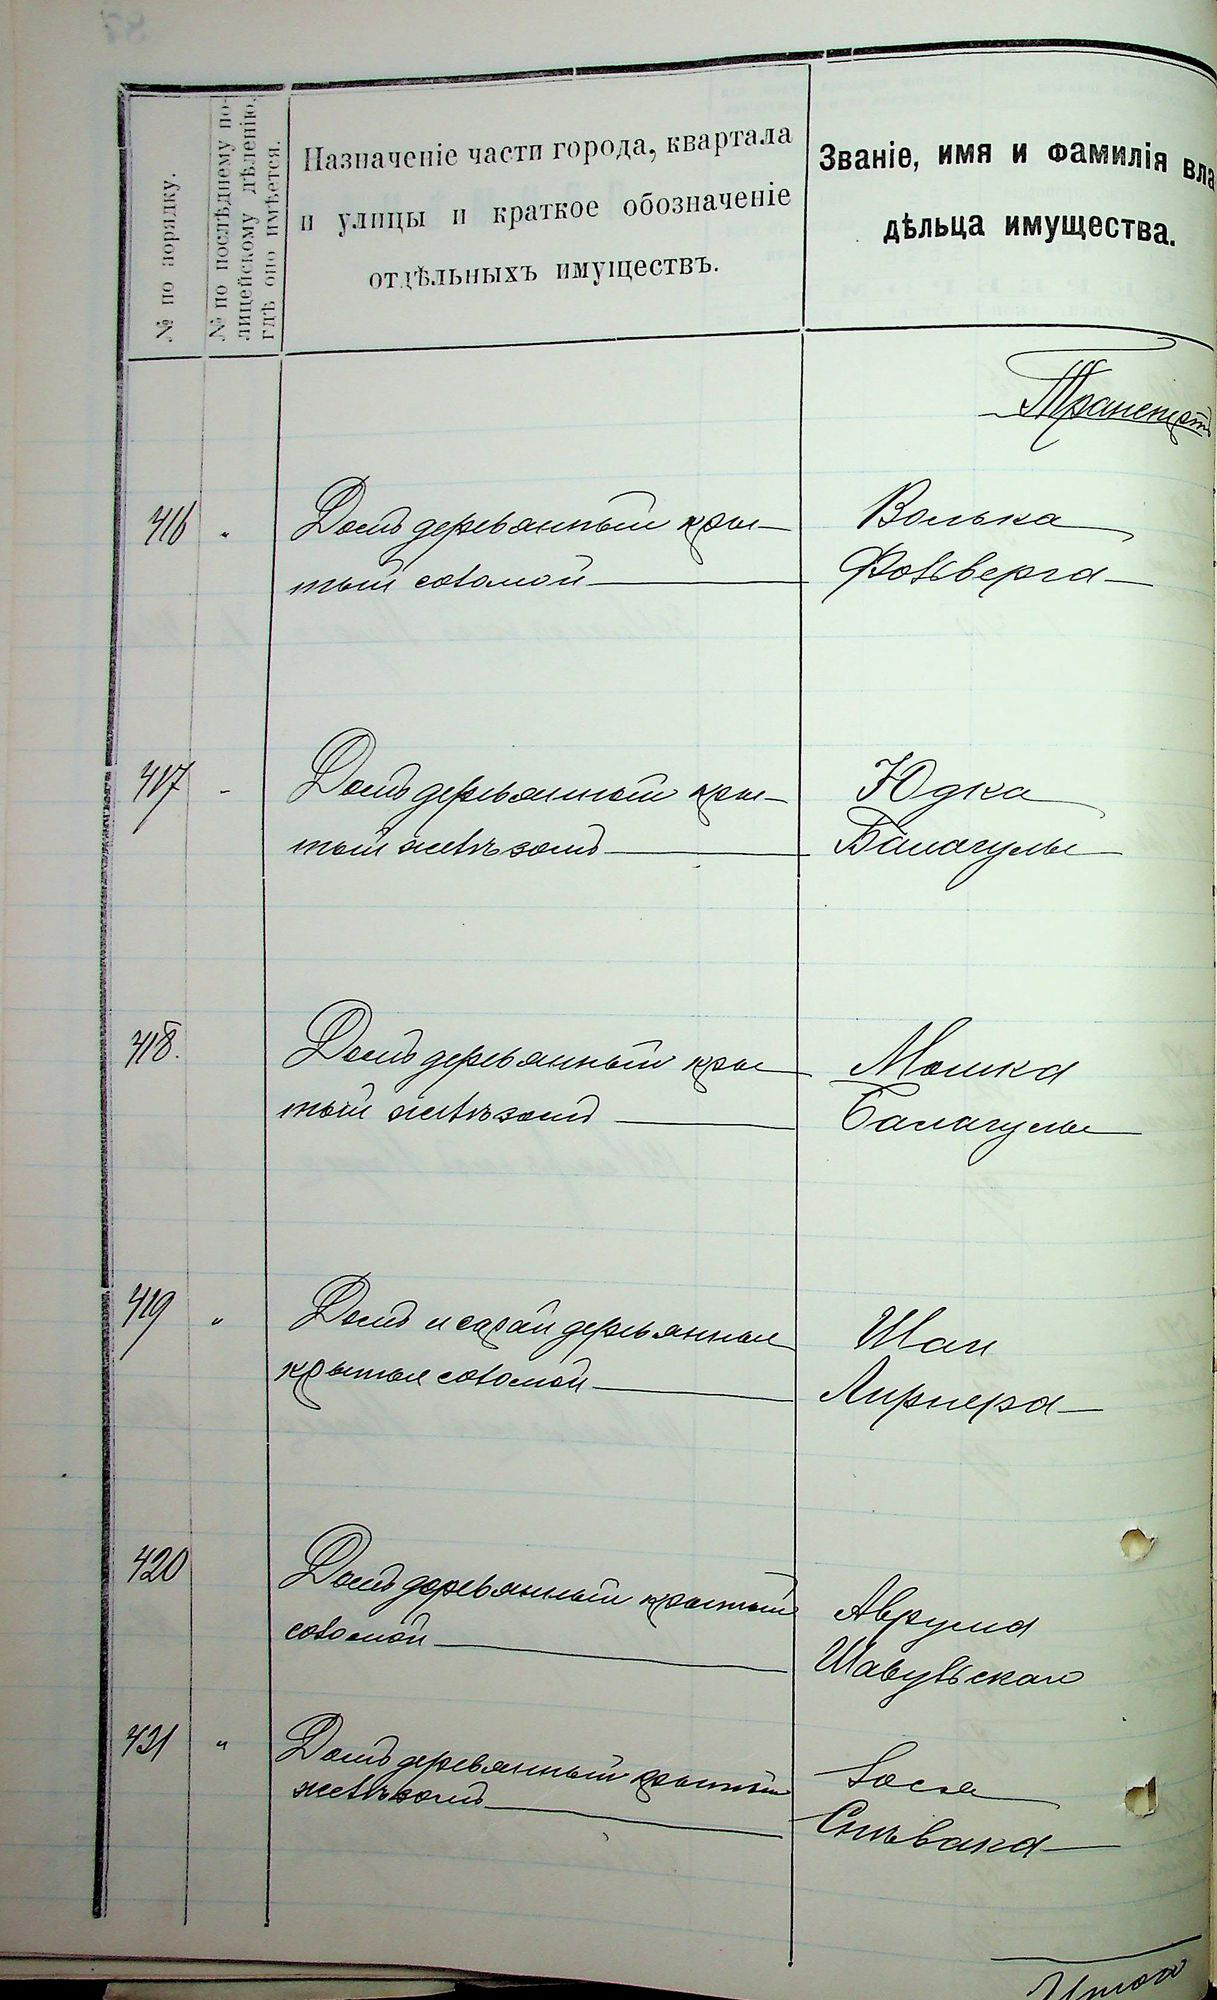 № по порядку.
№ по послѣднему по-
лицейскому дѣленію,
гдѣ оно имѣется.
Назначеніе части города, квартала
и улицы и краткое обозначеніе
отдѣльныхъ имуществъ.
Званіе, имя и фамилія вла
дѣльца имущества.
Транспортъ
416 " Домъ деревянный кры-
тый соломой
Волька
Фольверга
417 " Домъ деревянный кры-
тый желѣзомъ
Юдка
Балагулы
418. Домъ деревянный кры
тый желѣзомъ
Мошка
Балагулы
419 " Домъ и сарай деревянные
крытые соломой
Шаи
Лирнера
420 Домъ деревянный крытый
соломой
Аврума
Шавульскаго
421 " Домъ деревянный крытый
желѣзомъ
Іося
Спѣвака
Итого